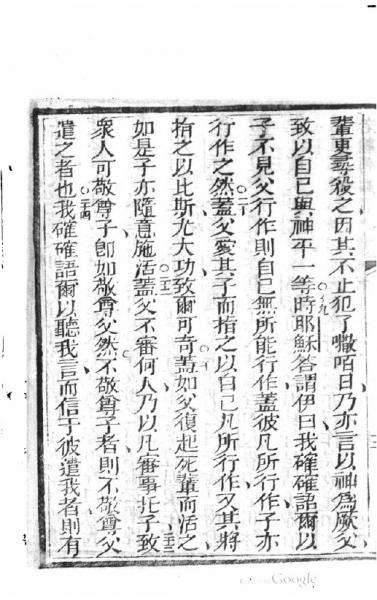 輩更尋殺之因其不止犯了㘔咟日乃亦言以神為厥父
致以自己與神平一等○十九時耶穌答謂伊曰我確確語爾以
子不見父行作則自己無所能行作蓋彼凡所行作子亦
行作之然○二十蓋父愛其子而指之以自己凡所行作又其將
指之以比斯尤大功致爾可奇○二一蓋如父復起死輩而活之
如是子亦隨意施活○二二蓋父不審何人乃以凡審事托子致○二三
衆人可敬尊子卽如敬尊父然不敬尊子者則不敬尊父
遣之者也○二四我確確語爾以聽我言而信于彼遣我者則有
Google